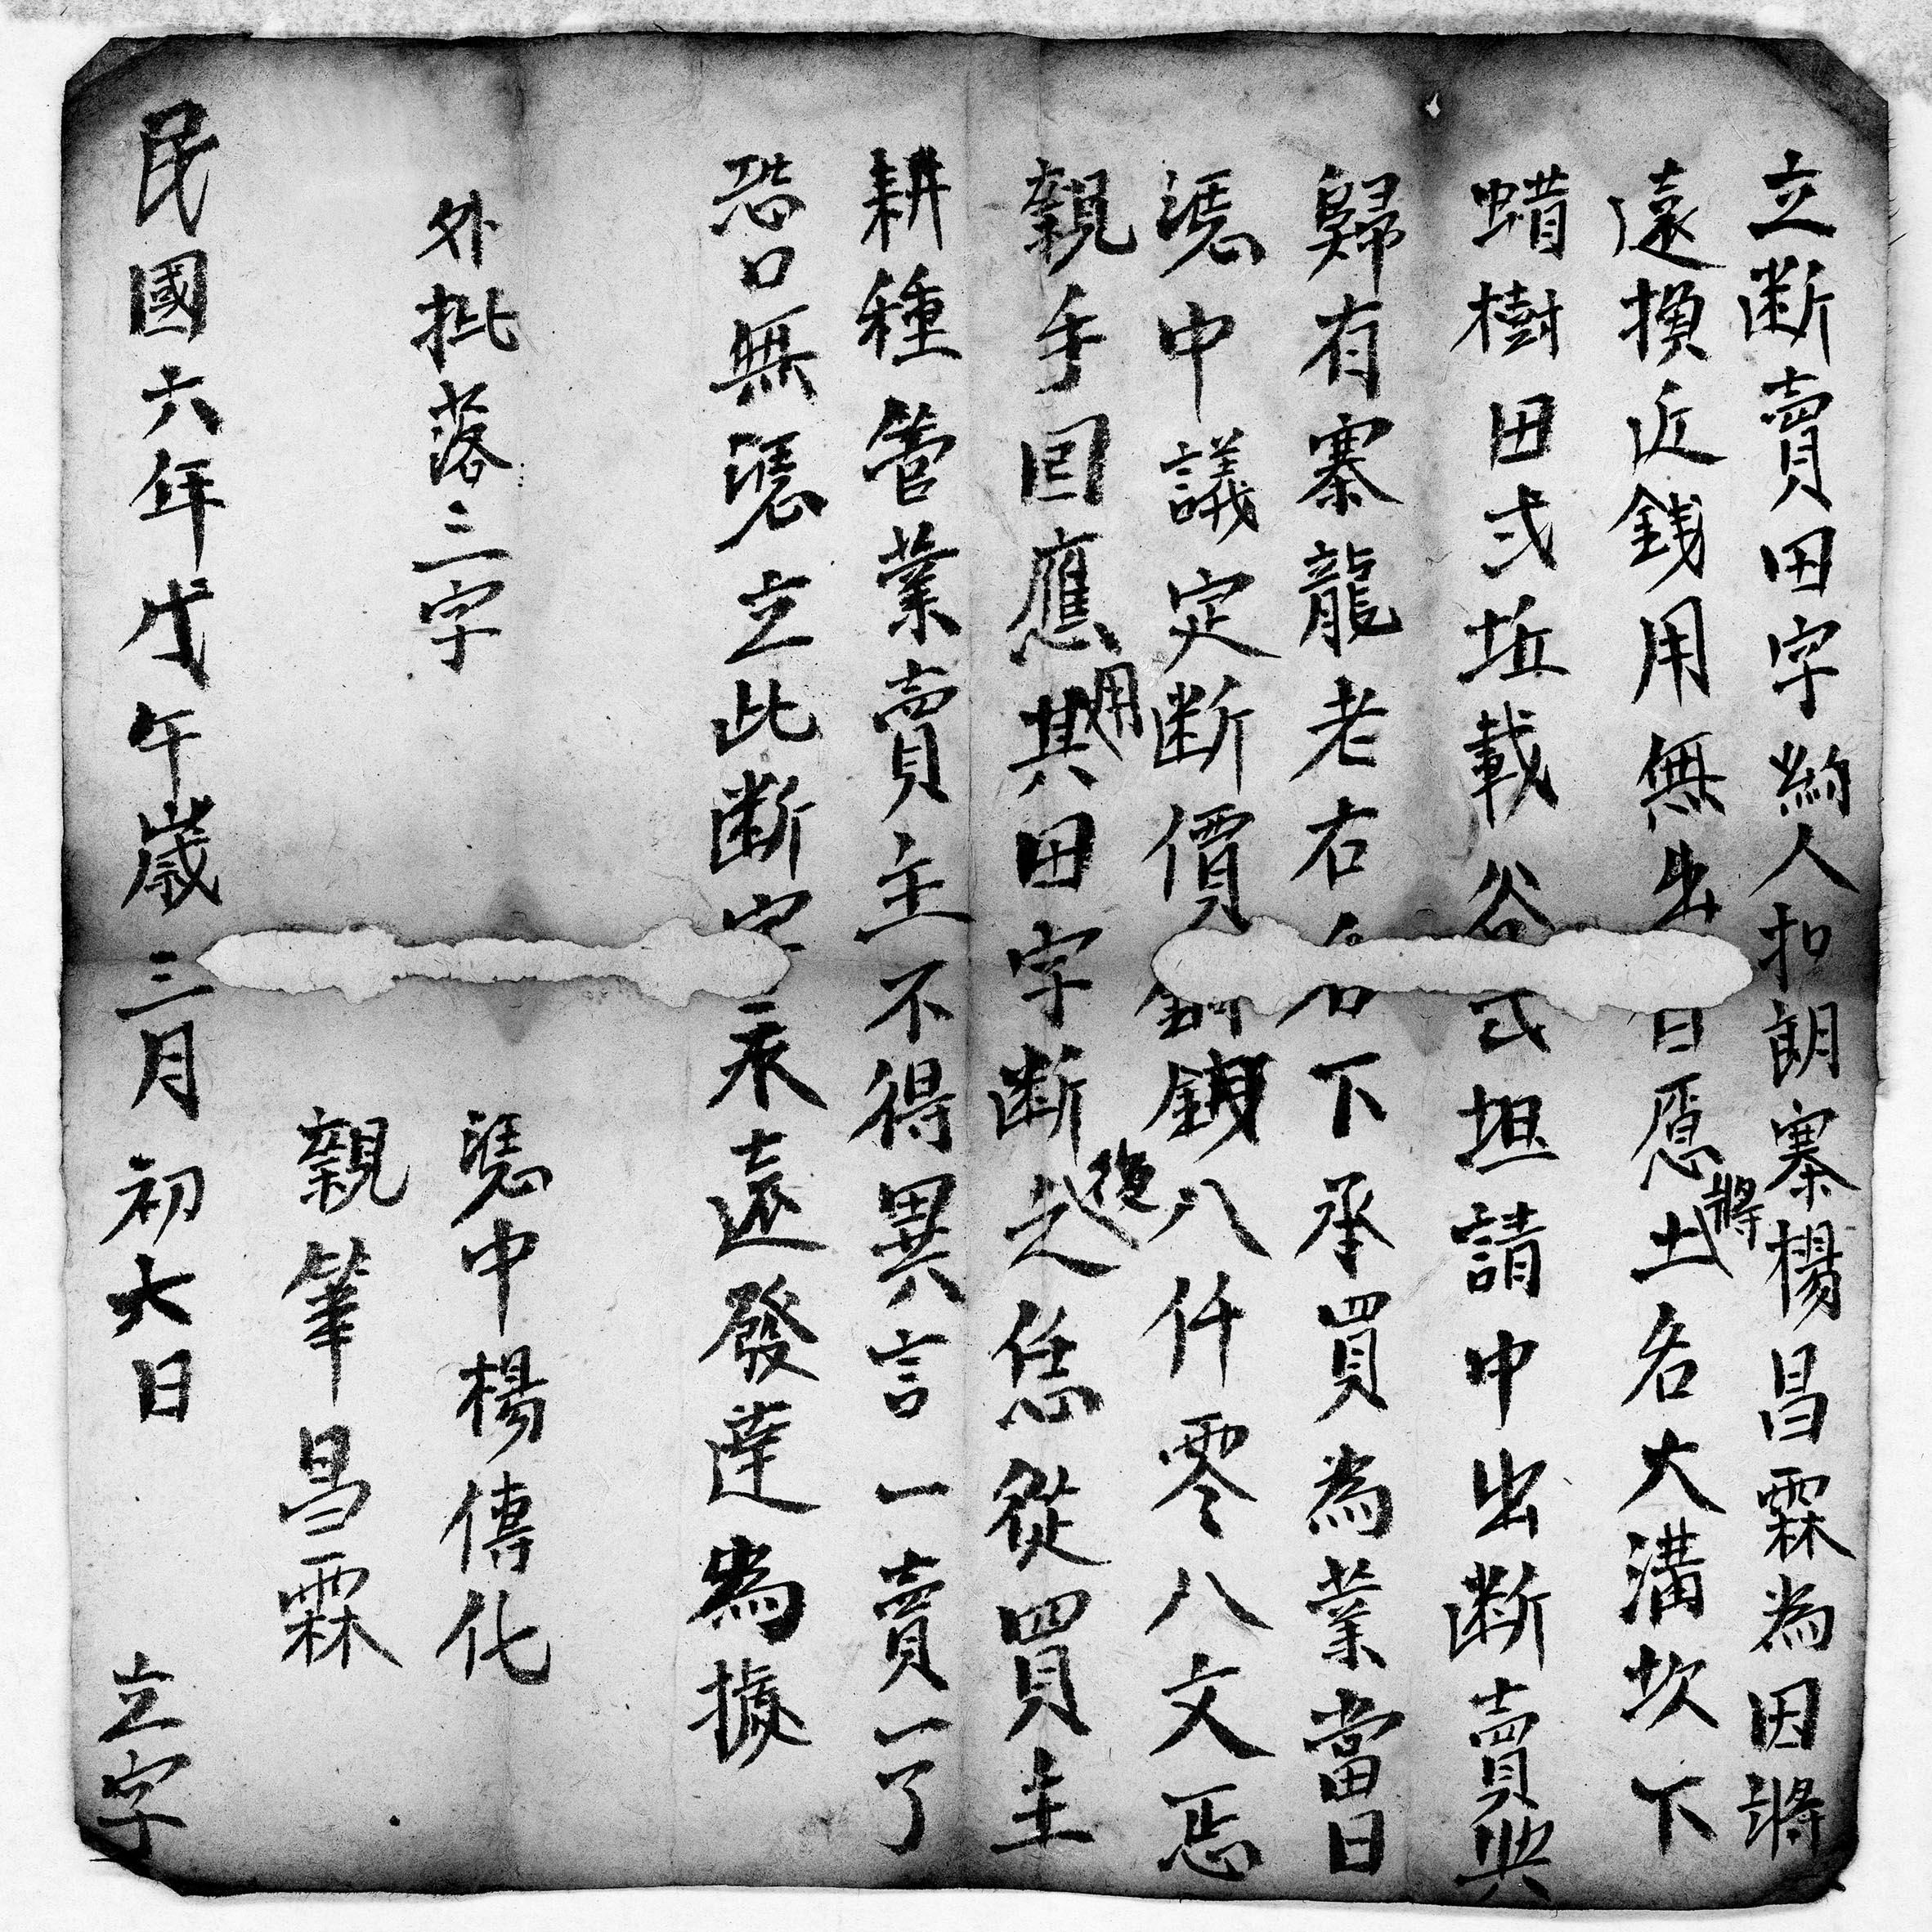 立断賣田字約人扣朗寨楊昌霖為因將
遠換近錢用無出日愿將土名大溝坎下
蜡樹田弍坵載谷弍担請中出断賣與
歸有寨龍老右名下承買為業當日
憑中議定断價錢八仟零八文恁
親手囬應用其田字断之後恁從買主
耕種管業賣主不得異言一賣一了
恐口無憑立此断字永遠發達為據
外批落三字
憑中楊傳化
親筆昌霖
民國六年戊午歲三月初六日 立字